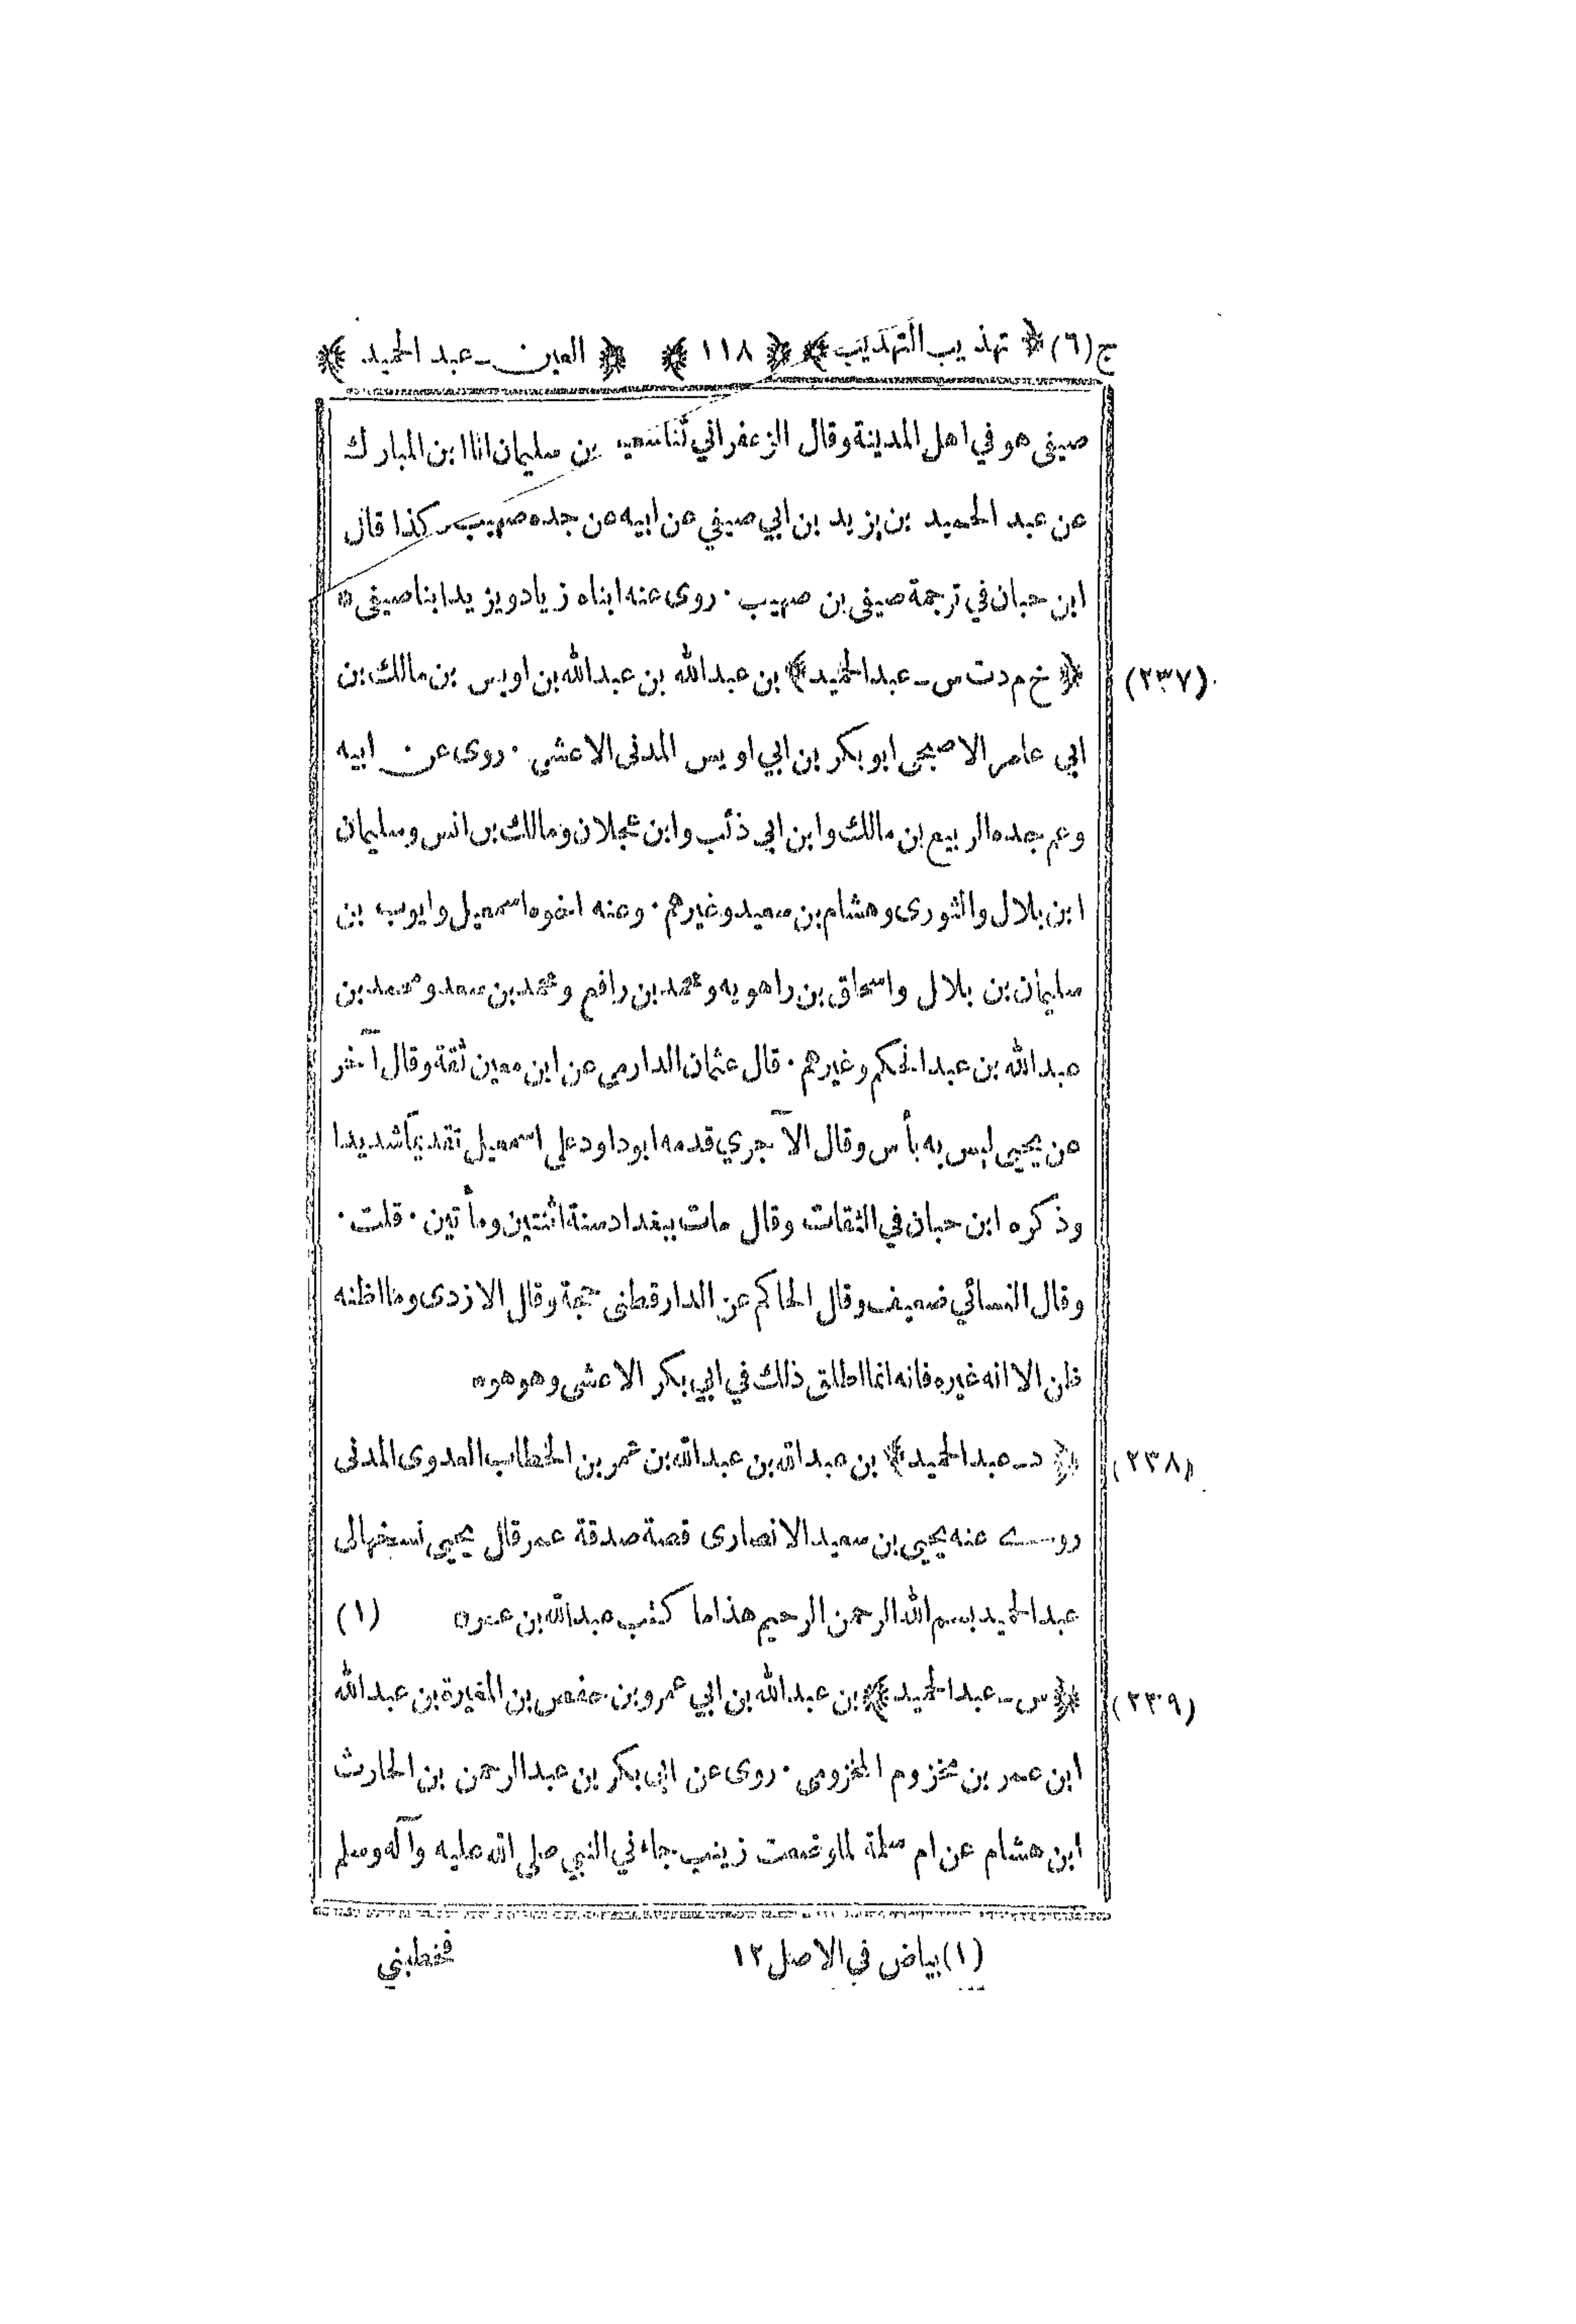 ج(٦) ﴿ تهذيب التهذيب ﴾ ﴿ ١١٨ ﴾ ﴿ العين ـ عبد الحميد ﴾
صيفى هو في اهل المدينة وقال الزعفراني ثنا سعيد بن سليمان انا ابن المبارك
عن عبد الحميد بن يزيد بن ابي صيفي عن ابيه عن جده صهيب كذا قال
ابن حبان في ترجمة صيفى بن صهيب · روى عنه ابناه زياد ويزيد ابنا صيفى ه
(٢٣٧) ﴿ خ م د ت س ـ عبد الحميد ﴾ بن عبدالله بن عبدالله بن اويس بن مالك بن
ابي عامر الاصبحى ابو بكر بن ابي اويس المدنى الاعشى · روى عن ابيه
وعم جده الربيع بن مالك وابن ابي ذئب وابن عجلان ومالك بن انس وسليمان
ابن بلال والثورى وهشام بن سعيد وغيرهم · وعنه اخوه اسمعيل وايوب بن
سليمان بن بلال واسحاق بن راهويه ومحمد بن رافع ومحمد بن سعد ومحمد بن
عبدالله بن عبد الحكم وغيرهم · قال عثمان الدارمي عن ابن معين ثقة وقال آخر
عن يحيى ليس به بأس وقال الآجري قدمه ابو داود على اسمعيل تقديمًا شديدا
وذكره ابن حبان في الثقات وقال مات ببغداد سنة اثنتين ومأتين · قلت ·
وقال النسائي ضعيف وقال الحاكم عن الدار قطنى حجة وقال الازدى وما اظنه
ظن الا انه غيره فانه انما اطلق ذلك في ابي بكر الاعشى وهو هو ه
(٢٣٨) ﴿ د ـ عبد الحميد ﴾ بن عبدالله بن عبدالله بن عمر بن الخطاب العدوى المدنى
روى عنه يحيى بن سعيد الانصارى قصة صدقة عمر قال يحيى نسخها لى
عبد الحميد بسم الله الرحمن الرحيم هذا ما كتب عبدالله بن عمر ه (١)
(٢٣٩) ﴿ س ـ عبد الحميد ﴾ بن عبدالله بن ابي عمرو بن حفص بن المغيرة بن عبدالله
ابن عمر بن مخزوم المخزومي · روى عن ابي بكر بن عبد الرحمن بن الحارث
ابن هشام عن ام سلمة لما وضعت زينب جاءني النبي صلى الله عليه وآله وسلم
(١) بياض في الاصل ١٢ فخطبني